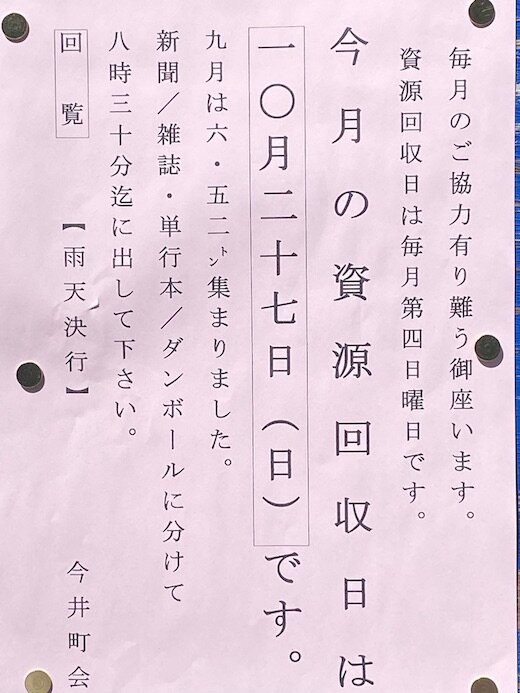 毎月のご協力有り難う御座います。
資源回収日は毎月第四日曜日です。
今月の資源回収日は
一〇月二十七日（日）です。
九月は六・五二㌧集まりました。
新聞／雑誌・単行本／ダンボールに分けて
八時三十分迄に出して下さい。
回覧 【雨天決行】 今井町会